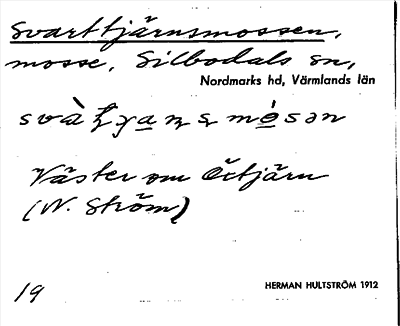 Svarttjärnsmossen,
mosse, Silbodals sn,
Nordmarks hd, Värmlands län
Väster om Örtjärn
(N. Ström)
19
HERMAN HULTSTRÖM 1912